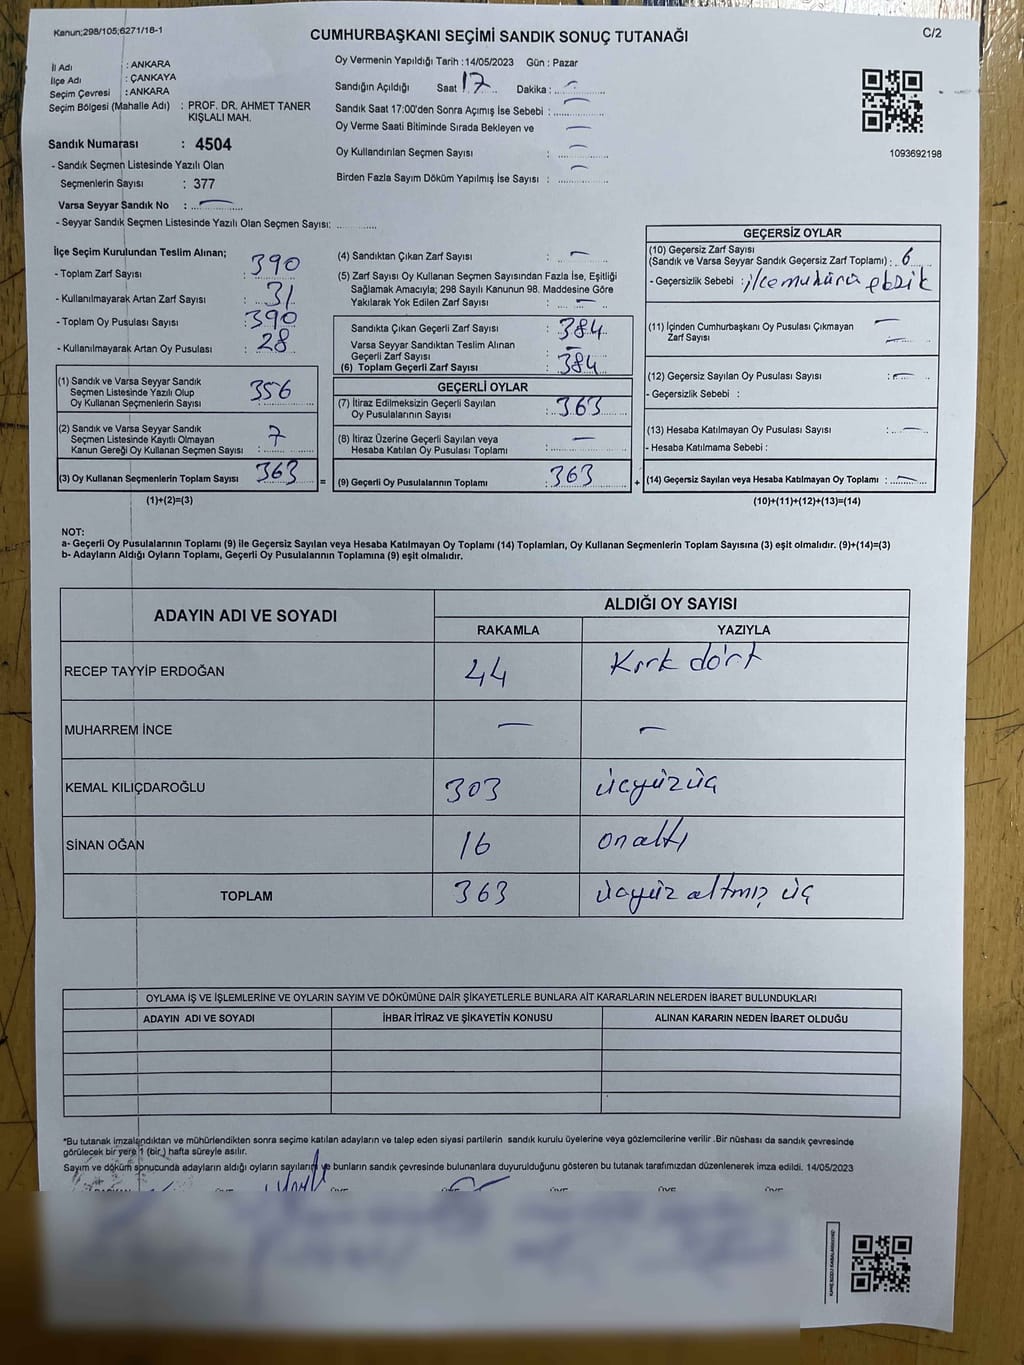 Kanun;298/105;6271/16-1
CUMHURBAŞKANI SEÇİMİ SANDIK SONUÇ TUTANAĞI
C/2
İl Adı : ANKARA
İlçe Adı : ÇANKAYA
Seçim Çevresi : ANKARA
Seçim Bölgesi (Mahalle Adı) : PROF. DR. AHMET TANER
KIŞLALI MAH.
Sandık Numarası : 4504
- Sandık Seçmen Listesinde Yazılı Olan
Seçmenlerin Sayısı : 377
Varsa Seyyar Sandık No : —
- Seyyar Sandık Seçmen Listesinde Yazılı Olan Seçmen Sayısı: ............
Oy Vermenin Yapıldığı Tarih : 14/05/2023 Gün : Pazar
Sandığın Açıldığı Saat 17 Dakika : —
Sandık Saat 17:00'den Sonra Açımış İse Sebebi : —
Oy Verme Saati Bitiminde Sırada Bekleyen ve —
Oy Kullandırılan Seçmen Sayısı : —
Birden Fazla Sayım Döküm Yapılmış İse Sayısı : —
1093692198
İlçe Seçim Kurulundan Teslim Alınan;
- Toplam Zarf Sayısı : 390
- Kullanılmayarak Artan Zarf Sayısı : 31
- Toplam Oy Pusulası Sayısı : 390
- Kullanılmayarak Artan Oy Pusulası : 28
(1) Sandık ve Varsa Seyyar Sandık
Seçmen Listesinde Yazılı Olup
Oy Kullanan Seçmenlerin Sayısı : 356
(2) Sandık ve Varsa Seyyar Sandık
Seçmen Listesinde Kayıtlı Olmayan
Kanun Gereği Oy Kullanan Seçmen Sayısı : 7
(3) Oy Kullanan Seçmenlerin Toplam Sayısı 363
(1)+(2)=(3)
=
(4) Sandıktan Çıkan Zarf Sayısı : —
(5) Zarf Sayısı Oy Kullanan Seçmen Sayısından Fazla İse, Eşitliği
Sağlamak Amacıyla; 298 Sayılı Kanunun 98. Maddesine Göre
Yakılarak Yok Edilen Zarf Sayısı : —
Sandıkta Çıkan Geçerli Zarf Sayısı : 384
Varsa Seyyar Sandıktan Teslim Alınan
Geçerli Zarf Sayısı : —
(6) Toplam Geçerli Zarf Sayısı : 384
GEÇERLİ OYLAR
(7) İtiraz Edilmeksizin Geçerli Sayılan
Oy Pusulalarının Sayısı : 363
(8) İtiraz Üzerine Geçerli Sayılan veya
Hesaba Katılan Oy Pusulası Toplamı : —
(9) Geçerli Oy Pusulalarının Toplamı : 363
+
GEÇERSİZ OYLAR
(10) Geçersiz Zarf Sayısı
(Sandık ve Varsa Seyyar Sandık Geçersiz Zarf Toplamı) : 6
- Geçersizlik Sebebi :
(11) İçinden Cumhurbaşkanı Oy Pusulası Çıkmayan —
Zarf Sayısı —
(12) Geçersiz Sayılan Oy Pusulası Sayısı : —
- Geçersizlik Sebebi :
(13) Hesaba Katılmayan Oy Pusulası Sayısı : —
- Hesaba Katılmama Sebebi :
(14) Geçersiz Sayılan veya Hesaba Katılmayan Oy Toplamı : —
(10)+(11)+(12)+(13)=(14)
NOT:
a- Geçerli Oy Pusulalarının Toplamı (9) ile Geçersiz Sayılan veya Hesaba Katılmayan Oy Toplamı (14) Toplamları, Oy Kullanan Seçmenlerin Toplam Sayısına (3) eşit olmalıdır. (9)+(14)=(3)
b- Adayların Aldığı Oyların Toplamı, Geçerli Oy Pusulalarının Toplamına (9) eşit olmalıdır.
ADAYIN ADI VE SOYADI ALDIĞI OY SAYISI
RAKAMLA YAZIYLA
RECEP TAYYİP ERDOĞAN 44 Kırk dört
MUHARREM İNCE — —
KEMAL KILIÇDAROĞLU 303 üçyüzüç
SİNAN OĞAN 16 onaltı
TOPLAM 363 üçyüz altmış üç
OYLAMA İŞ VE İŞLEMLERİNE VE OYLARIN SAYIM VE DÖKÜMÜNE DAİR ŞİKAYETLERLE BUNLARA AİT KARARLARIN NELERDEN İBARET BULUNDUKLARI
ADAYIN ADI VE SOYADI İHBAR İTİRAZ VE ŞİKAYETİN KONUSU ALINAN KARARIN NEDEN İBARET OLDUĞU
*Bu tutanak imzalandıktan ve mühürlendikten sonra seçime katılan adayların ve talep eden siyasi partilerin sandık kurulu üyelerine veya gözlemcilerine verilir .Bir nüshası da sandık çevresinde
görülecek bir yere 1 (bir) hafta süreyle asılır.
Sayım ve döküm sonucunda adayların aldığı oyların sayılarını ve bunların sandık çevresinde bulunanlara duyurulduğunu gösteren bu tutanak tarafımızdan düzenlenerek imza edildi. 14/05/2023